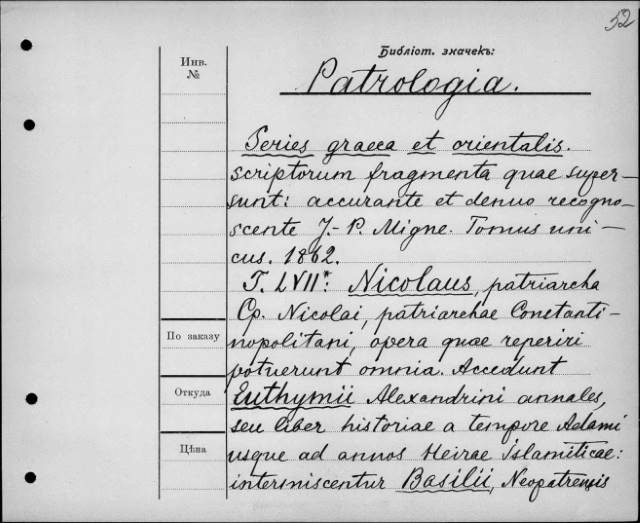 52
Библіот. значекъ:
Инв.
№
Patrologia.
Series graeca et orientalis.
scriptorum fragmenta quae super-
sunt: accurante et denuo recogno-
scente J.-P. Migne. Tomus uni-
cus. 1862.
T. LVII: Nicolaus, patriarcha
Cp. Nicolai, patriarchae Constanti-
По заказу
nopolitani, opera quae reperiri
potuerunt omnia. Accedunt
Откуда
Euthymii Alexandrini annales,
seu liber historiae a tempore Adami
Цѣна
usque ad annos Heirae Islamiticae:
intermiscentur Basilii, Neopatrensis